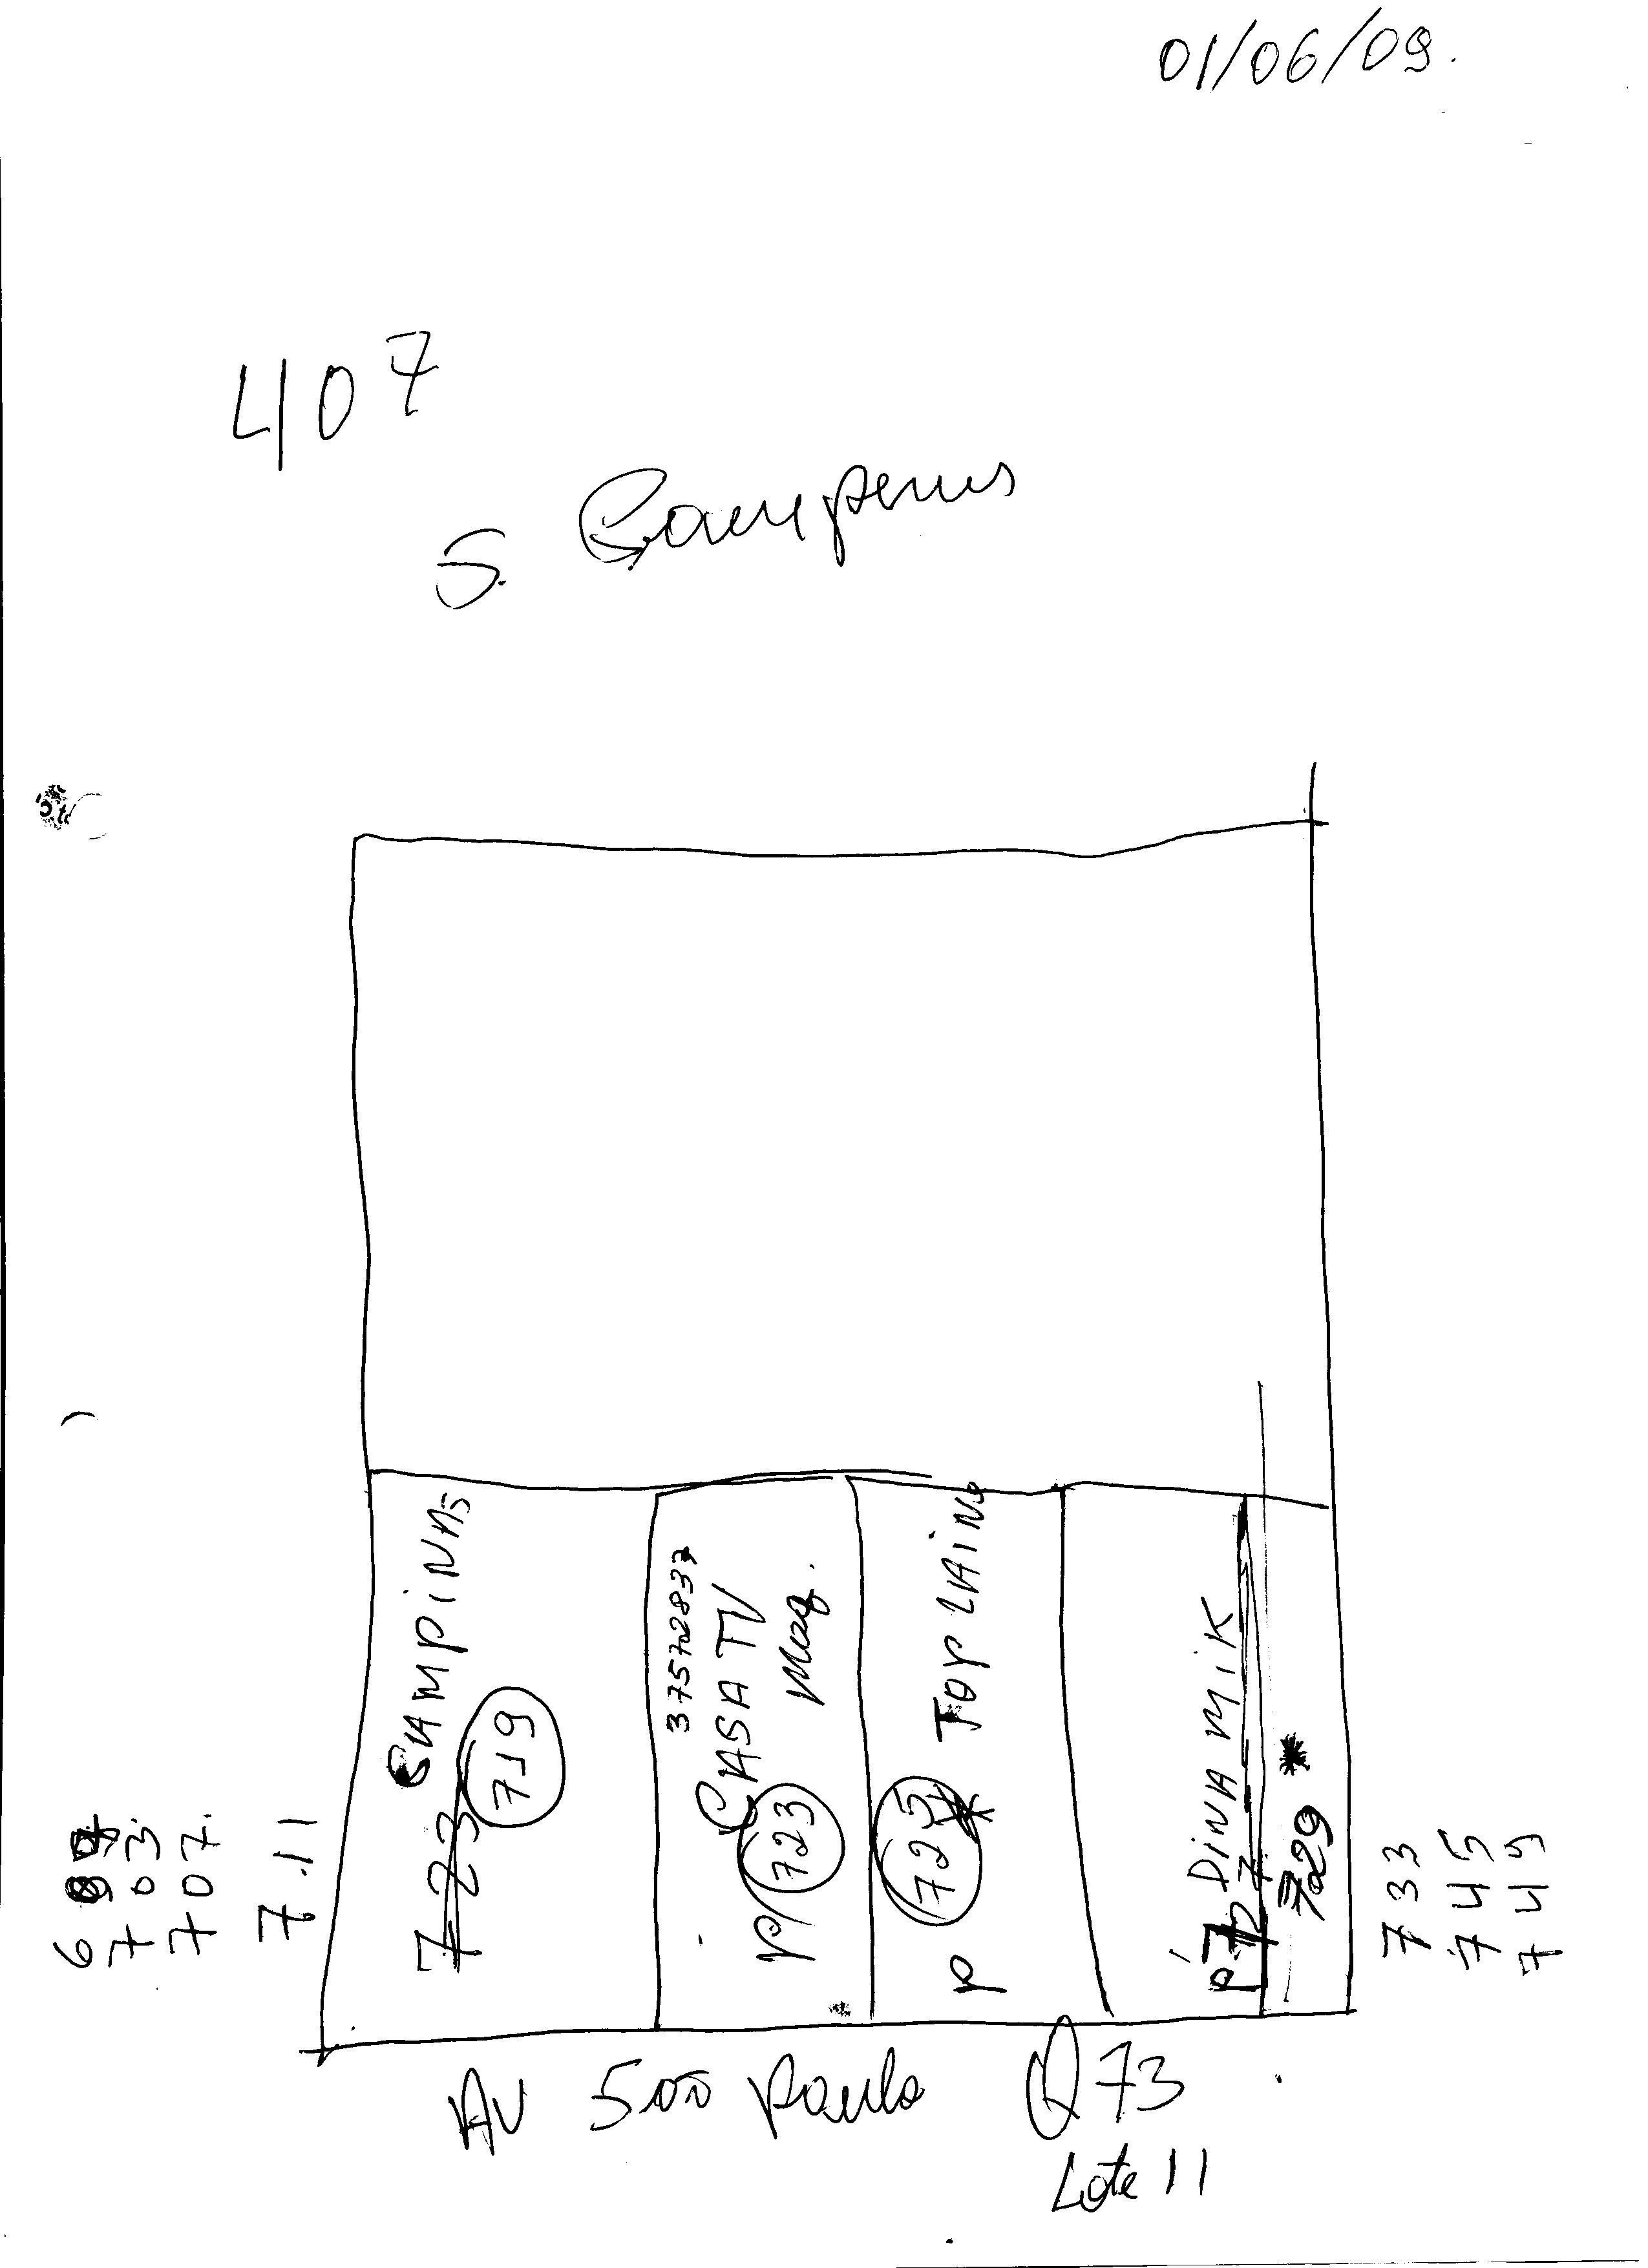 01/06/09.
407
S. Campinas
CAMPINAS
723
719
37572837
CASA TV
Maq.
P/ 723
TOP LAINE
P 725
DINAMIK
P/ 727
729
703
707.
7.11
733
745
749
AV São Paulo Q 73
Lote 11